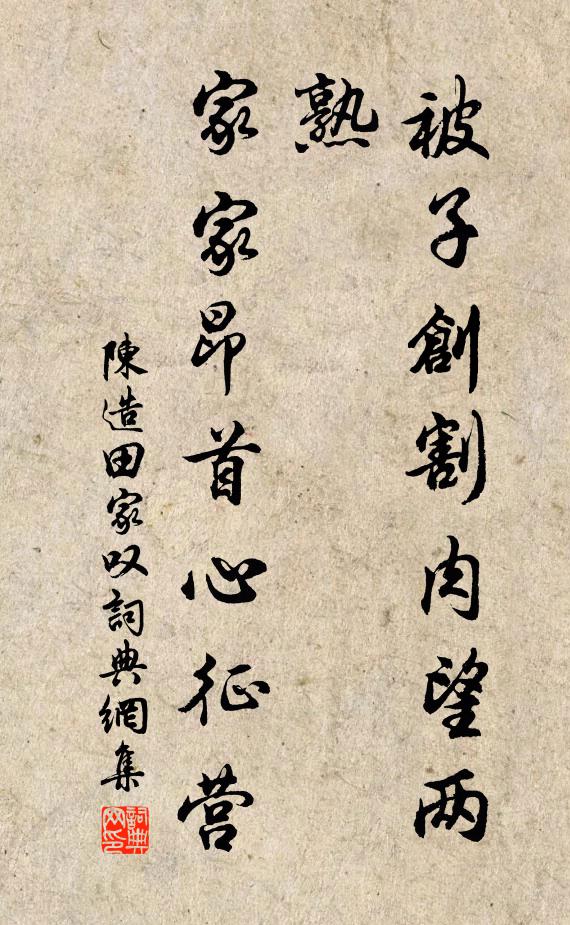 被子創割肉望两
熟
家家昂首心征营
陳造田家叹詞典網集
詞典网印